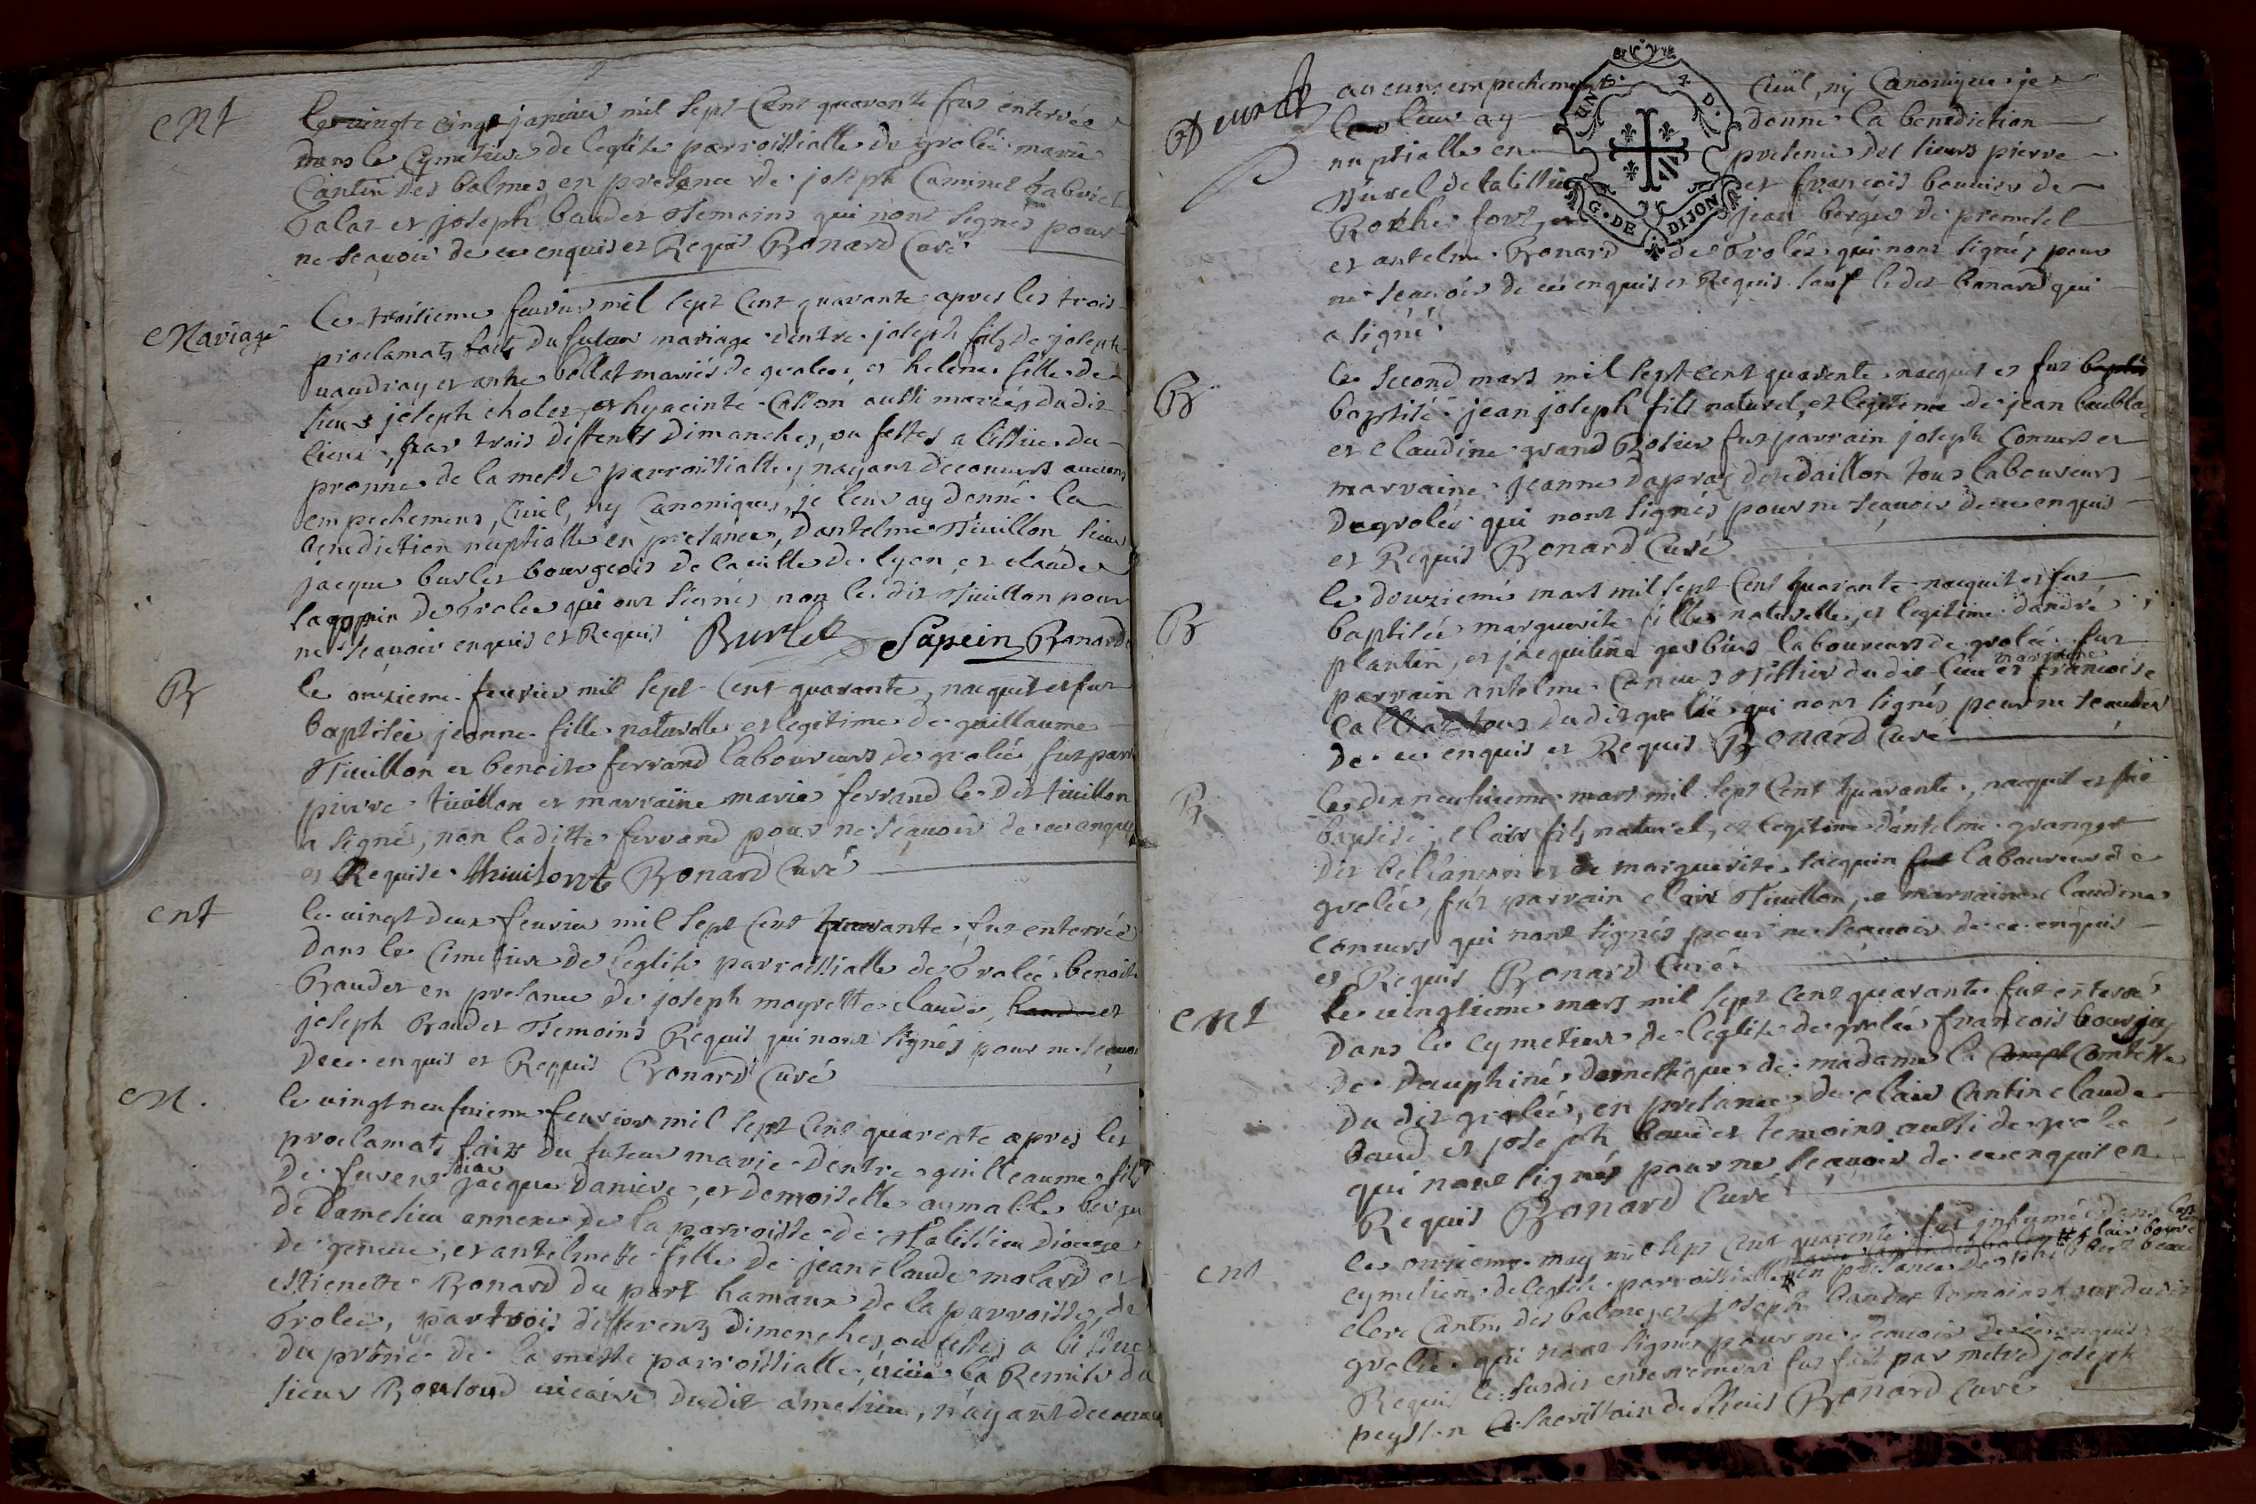 ent
le vingt cinq janvier mil sept Cent quarante fut enterrée
dans le Cymetiere de leglise parroissialle de grolée marie
Cantin des balmes en presance de joseph Caminet gabriel
Talat et joseph baudet Temoins qui nont signés pour
ne sçauoir de ce enquis et Requis Bonard Curé
Mariage
Le troisieme feurier mil sept Cent quarante apres les trois
proclamats faits du futeur mariage dentre joseph fils de joseph
uaudray et anthe bollat mariés de grolee, et helene fille de
sieur joseph cholet, et hyacinte Casson aussi mariés dudit
lieux, par trois differents dimanches, ou festes a lissue du
pronne de la messe parroissialle, nayant decouuert aucuns
empechemens, Ciuil, ny Canoniques, je leur ay donné la
benediction nuptialle en presance, Dantelme Tiuillon sieur
jacque burlet bourgeois de la uille de lyon, et claude
sappin de Grolee qui ont signés non le dit Tiuillon pour
ne sçauoir enquis et Requis Burlet Sapein Bonard
B
le onzieme feurier mil sept Cent quarante, nacquit et fut
baptisée jeanne fille naturelle et legitime de guillaume
Tiuillon et benoite ferrand laboureurs de grolée, fut parr
pierre tiuillon et marraine marie ferrand le dit tiuillon
a signé, non la ditte ferrand pour ne sçauoir de ce enquis
et Requise thiuillont Bonard Curé
ent
le vingt deux feurier mil sept Cent quarante, fut enterrée
dans le Cimetiere de leglise parroissialle de Grolée benoite
Baudet en presance de joseph mayrette claude, et
joseph Baudet Temoins Requis qui nont signés pour ne sçauoi
de ce enquis et Requis Bonard Curé
M.
le vingt neufuieme feurier mil sept Cent quarente apres les
proclamats faits du futeur marie dentre guilleaume fils
de furent sieur jacque Daniere, et demoiselle aumable berge
de Damesieu annexe de la parroisse de Talissieu Dioceze
de geneue, et antelmette fille de jean claude molard et
estienette Bonard du port hamaux de la parroisse, de
Grolee, par trois differents Dimenches, ou festes a lissue
du prône de la messe parroissialle, ueüe la Remise du
sieur Bouloud uicaire dudit amesieu, nayant decouuer
aucuns empechemens Ciuil, ny Canonique je
leur ay donné la benediction
nuptialle en presence des sieurs pierre
et francois bouuier de
Roche fort, et jean berger de premesel
et antelme Bonard de Grolée qui nont signés pour
ne sçauoir de ce enquis et Requis sauf le dit bonard qui
a signé
UNS. 4. D.
G. DE DIJON
B
le second mars mil sept cent quarente nacquit et fut
baptisé jean joseph fils naturel, et legitime de jean
et claudine grand Rosier fut parrain joseph Conuers et
marraine jeanne tous laboureurs
de grolée qui nont signés pour ne sçauoir de ce enquis
et Requis Bonard Curé
B
le douzieme mars mil sept Cent quarante nacquit et fut
baptisée marguerite fille naturelle, et legitime dandré
plantin, et jacqueline gerbier laboureurs de grolée fut
parrain antelme Conuers du dit lieu et marraine francoise
tous dudit grolée qui nont signés pour ne sçauoir
de ce enquis et Requis Bonard Curé
B
le dixneufuieme mars mil sept Cent quarante, nacquit et fut
baptisé, clair fils naturel, et legitime dantelme granger
dit et de marguerite sacquin laboureur de
grolée, fut parrain clair Tiuillon, et marraine claudine
Conuers qui nont signés pour ne sçauoir de ce enquis
et Requis Bonard Curé
ent
le vingtieme mars mil sept Cent quarante fut enterré
dans le Cymetiere de leglise de grolée francois
de Dauphiné domestique de madame la Comtesse
du dit grolée, en presance de clair Cantin claude
baud et joseph baudet temoins aussi de grolée
qui nont signés pour ne sçauoir de ce enquis et
Requis Bonard Curé
ent
le onzieme may mil sept Cent quarente fut inhumé dans le
cymetiere de leglise parroissialle en presance de
clere Cantin des balmes, et joseph baudet temoins dudit
grolée qui nont signés pour ne sçauoir de ce enquis
Requis le susdit enterrement fut fait par joseph
Bonard Curé